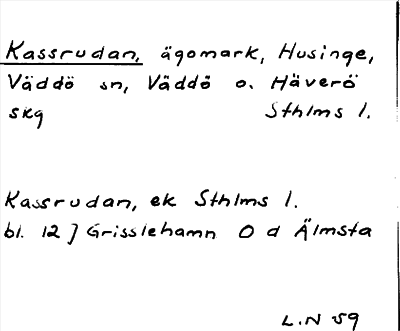 Kassrudan, ägomark, Husinge,
Väddö sn, Väddö o. Häverö
skg Sthlms l.
Kassrudan, ek Sthlms l.
bl. 12 J Grisslehamn O d Älmsta
L.N 59